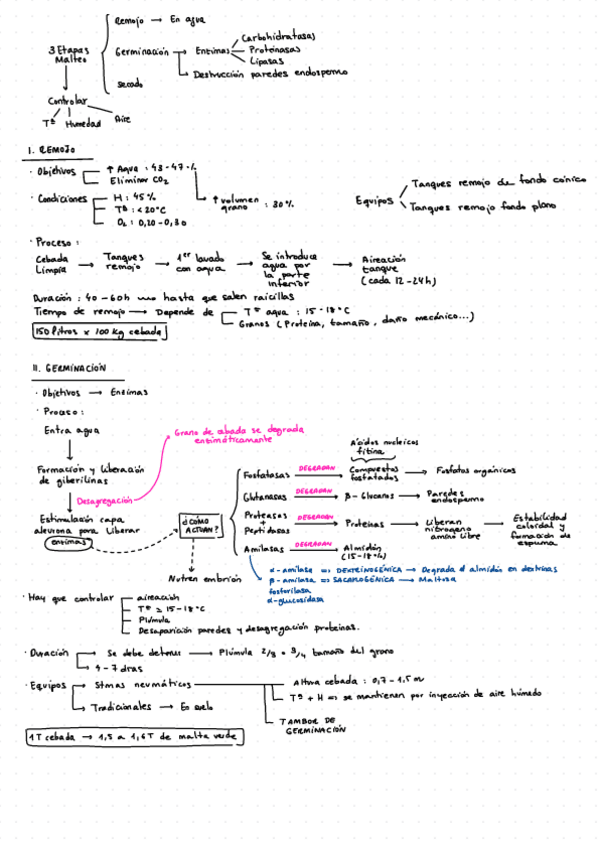 3 Etapas Malteo
Remojo → En agua
Germinación → Enzimas
Carbohidratasas
Proteinasas
Lipasas
Destrucción paredes endospermo
secado
Controlar
Tª Humedad Aire
I. REMOJO
· Objetivos
↑ Agua : 43-47 %
Eliminar CO2
↑ volumen grano : 30 %
· Condiciones
H : 45 %
Tª : <20°C
O2 : 0,20-0,30
Equipos
Tanques remojo de fondo cónico
Tanques remojo fondo plano
· Proceso :
Cebada Limpia → Tanques remojo → 1er lavado con agua → Se introduce agua por la parte inferior → Aireación tanque (cada 12-24h)
Duración : 40-60h hasta que salen raicillas
Tiempo de remojo → Depende de
Tª agua : 15-18°C
Granos (Proteína, tamaño, daño mecánico...)
150 litros x 100 Kg cebada
II. GERMINACIÓN
· Objetivos → Enzimas
· Proceso :
Entra agua
Grano de cebada se degrada enzimáticamente
Formación y liberación de giberilinas
Desagregación
Estimulación capa aleurona para liberar enzimas
¿CÓMO ACTUAN?
Nutren embrión
Ácidos nucleicos fitina
Fosfatasas DEGRADAN Compuestos fosfatados → Fosfatos orgánicos
Glutanasas DEGRADAN β-Glucanos → Paredes endospermo
Proteasas + Peptidasas DEGRADAN Proteínas → Liberan nitrógeno amino libre → Estabilidad coloidal y formación de espuma
Amilasas DEGRADAN Almidón (15-18%)
α-amilasa => DEXTRINOGÉNICA → Degrada el almidón en dextrinas
β-amilasa => SACAROGÉNICA → Maltosa
fosforilasa
α-glucosidasa
· Hay que controlar
aireación
Tª ≥ 15-18°C
Plúmula
Desaparición paredes y desagregación proteínas.
· Duración
Se debe detener → Plúmula 2/3 o 3/4 tamaño del grano
4-7 días
· Equipos → Stmas neumáticos
Altura cebada : 0,7-1,5 m
Tª + H => se mantienen por inyección de aire húmedo
Tradicionales → En suelo
TAMBOR DE GERMINACIÓN
1T cebada → 1,5 a 1,6T de malta verde